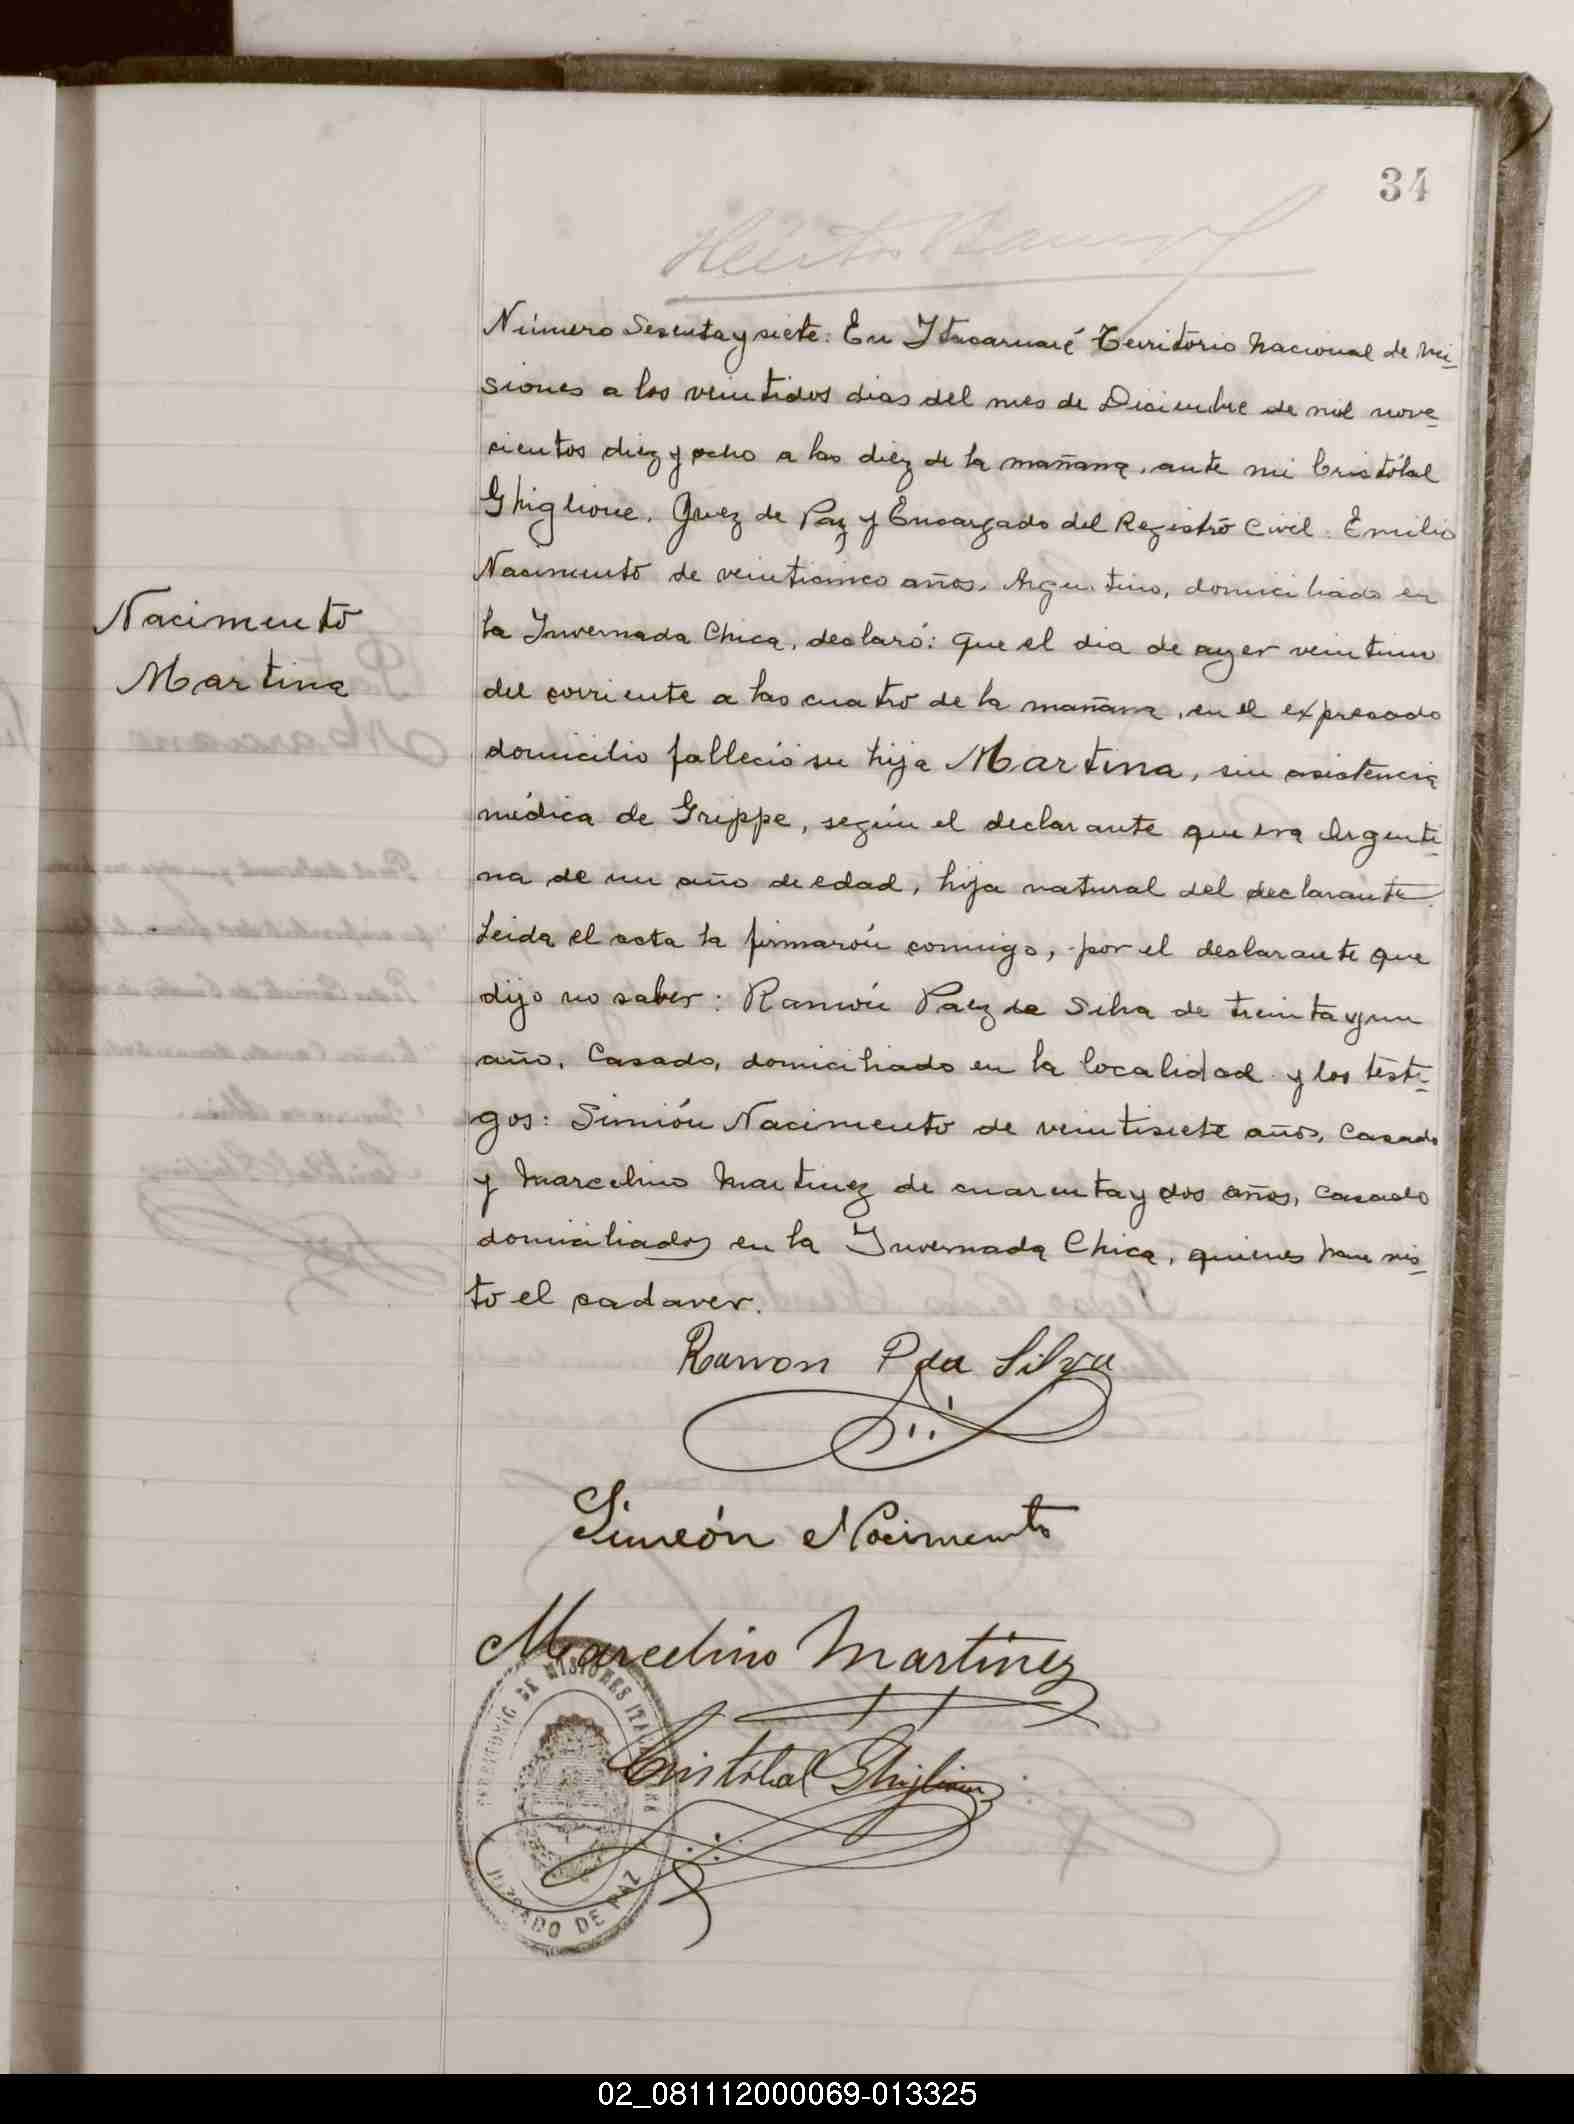 34
Nacimento
Martina
Número Sesenta y siete: En Itacaruaré Territorio Nacional de Mi-
siones a los veintidos dias del mes de Diciembre de mil nove-
cientos diez y ocho a las diez de la mañana, ante mi Cristóbal
Ghiglione, Juez de Paz y Encargado del Registro Civil: Emilio
Nacimento de veinticinco años, Argentino, domiciliado en
la Invernada Chica, declaró: que el dia de ayer veintiuno
del corriente a las cuatro de la mañana, en el expresado
domicilio falleció su hija Martina, sin asistencia
médica de Grippe, según el declarante que era Argenti-
na de un año de edad, hija natural del declarante.
Leida el acta la firmarón conmigo, por el declarante que
dijo no saber: Ramón Paez da Silva de treinta y un
año, Casado, domiciliado en la localidad y los testi-
gos: Simión Nacimento de veintisiete años, Casado
y Marcelino Martinez de cuarenta y dos años, Casado
domiciliados en la Invernada Chica, quienes han vis-
to el cadaver.
Ramon P da Silva
Simeón Nacimento
Marcelino Martinez
Cristobal Ghiglione
TERRITORIO DE MISIONES
JUZGADO DE PAZ
02_081112000069-013325